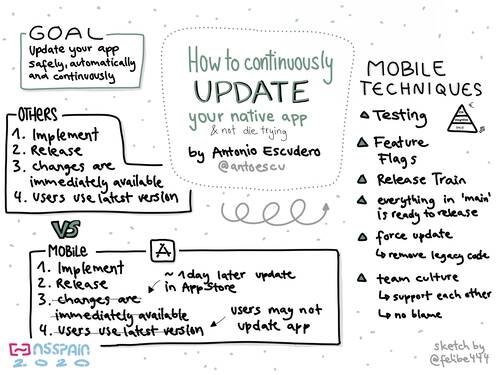 GOAL
Update your app
safely, automatically
and continuously
How to continuously
UPDATE
your native app
& not die trying
by Antonio Escudero
@antoescu
OTHERS
1. Implement
2. Release
3. changes are
immediately available
4. Users use latest version
VS
MOBILE
1. Implement
2. Release
3. changes are
immediately available
4. Users use latest version
~ 1 day later update
in App Store
users may not
update app
MOBILE
TECHNIQUES
Testing
Feature
Flags
Release Train
everything in 'main'
is ready to release
force update
↳ remove legacy code
team culture
↳ support each other
↳ no blame
NSSPAIN
2020
sketch by
@felibe444